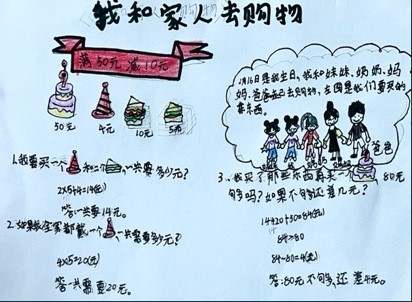 我和家人去购物
满50元减10元
50元
4元
10元
5元
1月16日是我生日,我和妹妹、奶奶、妈
妈、爸爸一起去购物,左图是我们要买的
东西。
爸爸
1.我要买一个和二个,一共需多少元?
2×5+4=14(元)
答:一共要14元。
2.如果我全家都戴一个,一共需要多少元?
4×5=20(元)
答:一共需要20元。
3.我买了那些东西再买一个
80元
够吗?如果不够还差几元?
14+20+50=84(元)
84>80
84-80=4(元)
答:80元不够,还差4元。